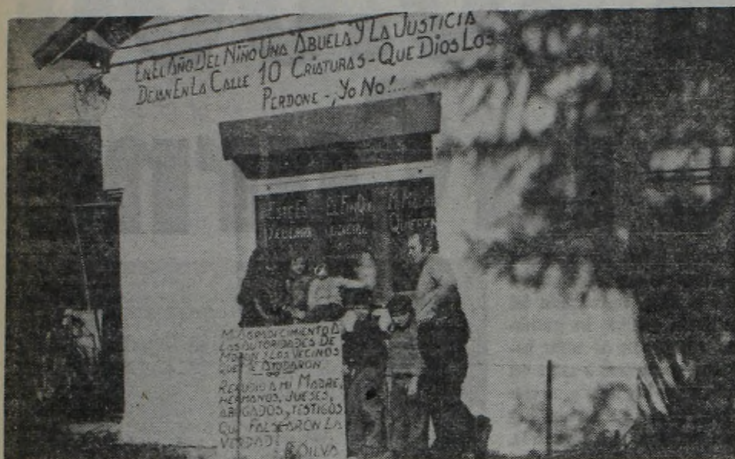 EN EL AÑO DEL NIÑO UNA ABUELA Y LA JUSTICIA
DEJAN EN LA CALLE 10 CRIATURAS - QUE DIOS LOS
PERDONE - ¡YO NO!...
ESTE ES EL FIN QUE
QUEREN
MI AGRADECIMIENTO A
LAS AUTORIDADES DE
MORON Y LOS VECINOS
QUE AYUDARON
REPUDIO A MI MADRE,
HERMANOS, JUESES,
ABOGADOS, TESTIGOS
QUE FALSEARON LA
VERDAD
SILVA